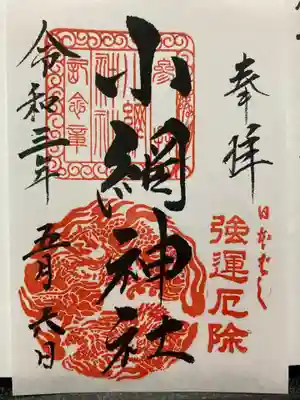 奉拝
日本ばし
強運厄除
小網神社
令和三年
五月六日